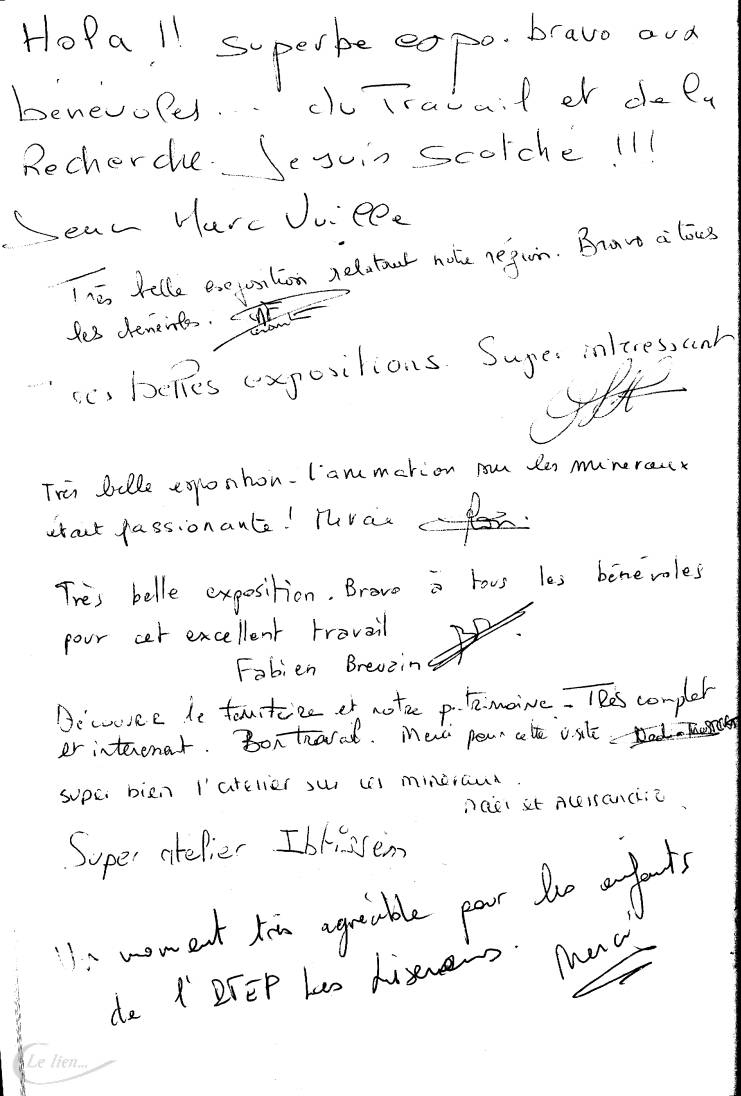 Hola !! Superbe expo. bravo aux
bénévoles... du Travail et de la
Recherche. Je suis Scotché !!!
Jean Marc Vuille
Très belle exposition relatant notre région. Bravo à tous
les bénévoles.
très belles expositions. Super interessant
Très belle exposition - l'animation sur les mineraux
était passionante ! Merci
Très belle exposition. Bravo à tous les bénévoles
pour cet excellent travail
Fabien Breuzin
Découvrir le territoire et notre patrimoine - Très complet
et interessant. Bon travail. Merci pour cette visite
super bien l'atelier sur les minéraux.
et Alessandria
Super atelier Ibtissem
Un moment très agréable pour les enfants
de l'DTEP Les Liserons. Merci
Le lien...